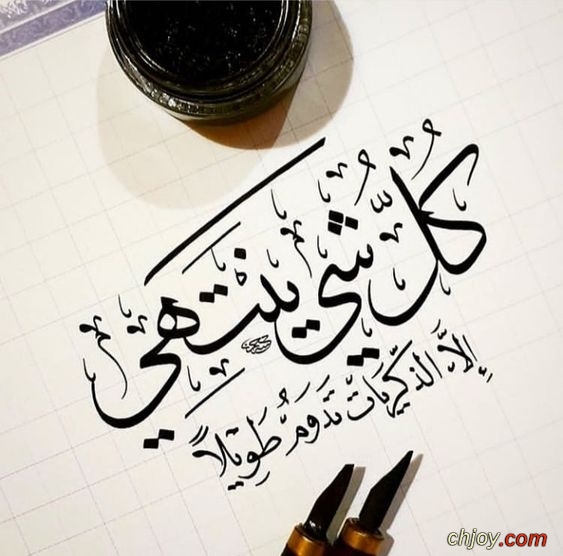 كُلُّ شَيٍ يَنْتَهِي
إِلَّا الذِّكْرِيَاتْ تَدَومُ طَوِيلاً
chjoy.com